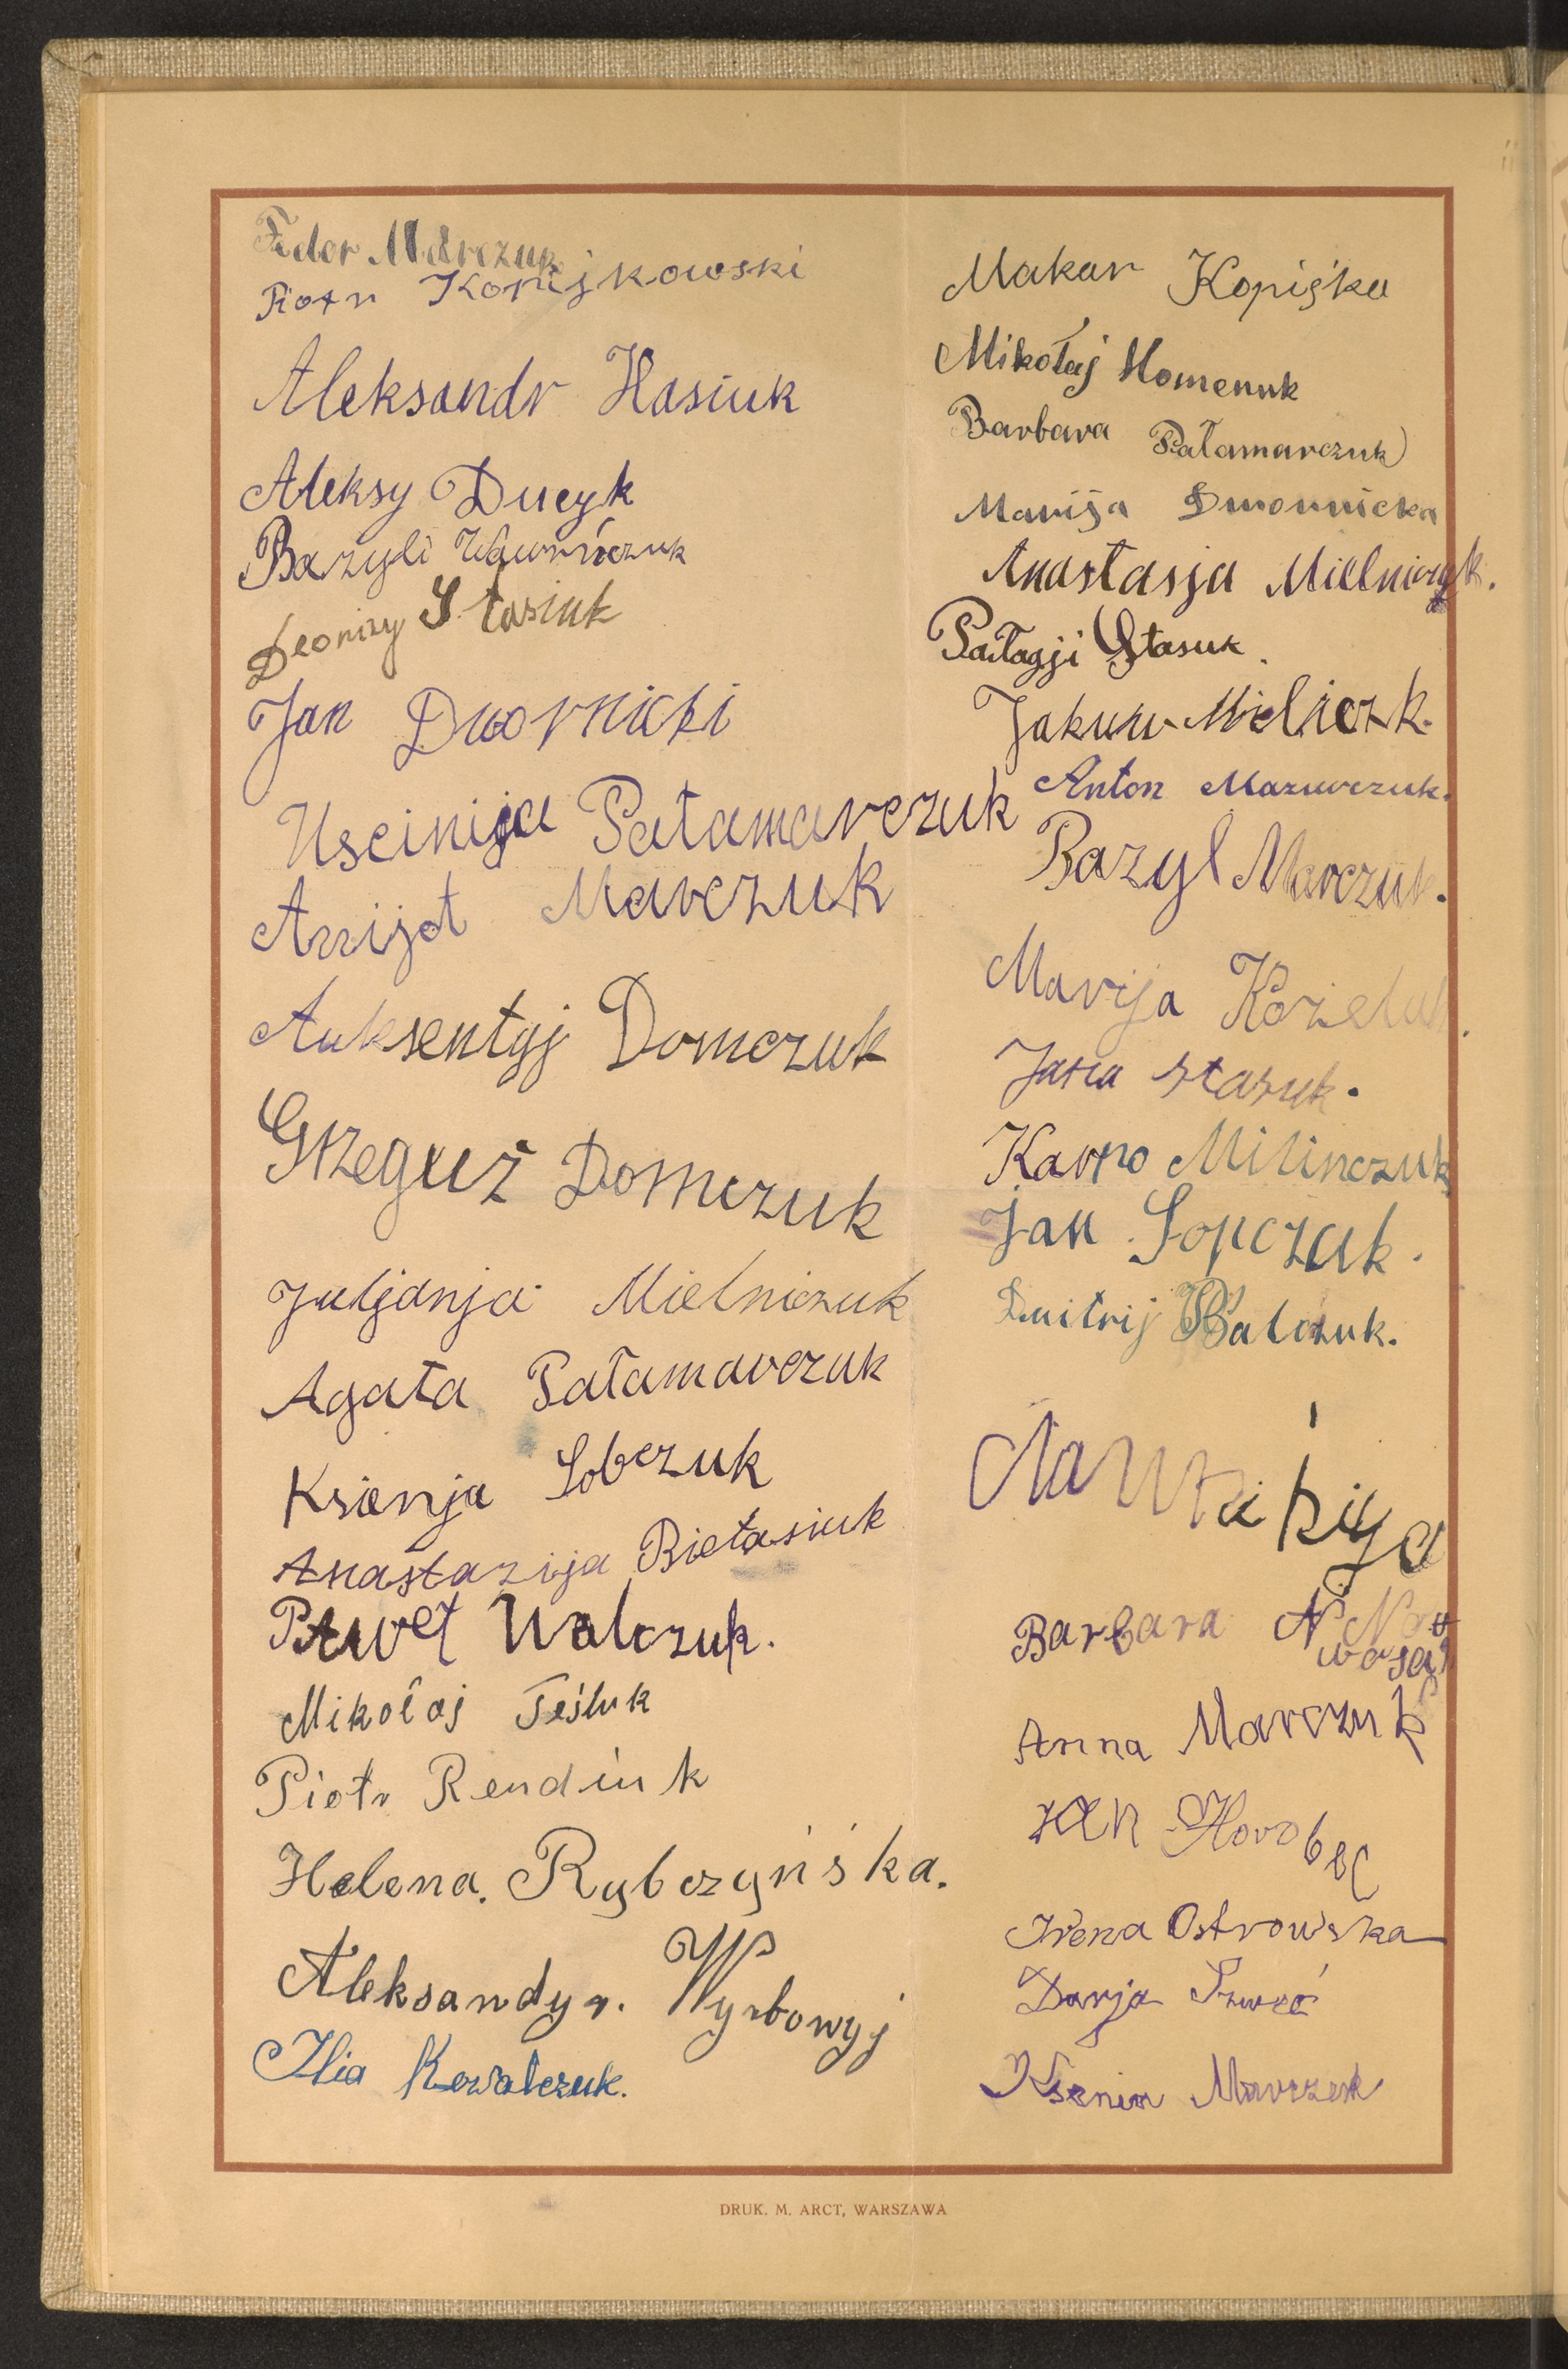 Fedor Marczuk
Piotr Konijkowski
Aleksandr Hasiuk
Aleksy Ducyk
Bazyli Wawrińczuk
Deonizy Stasiuk
Jan Dwornicki
Uscinija Patamarczuk
Anijet Marczuk
Auksentyj Domczuk
Grzeguż Domczuk
Juljanja Mielniczuk
Agata Pałamarczuk
Ksienja Sobczuk
Anastazija Bietasiuk
Paweł Walczuk.
Mikołaj Teśluk
Piotr Rendiuk
Helena. Rybczyńśka.
Aleksandyr. Wyrbowyj
Ilia Kowalczuk.
Makar Kopijka
Mikołaj Homenuk
Barbara Pałamarczuk
Marija Dwornicka
Anastasja Mielniczyk.
Pałagji Stasuk.
Jakuw Mieliczk.
Anton Mazurczuk.
Bazyl Marczuk.
Marija Kozeluk.
Jana Stasuk.
Karpo Milinczuk
Jan Sopczuk.
Dmitrij Balczuk.
Barbara N
wosat
Anna Marczuk
Jan Horobec
Irena Ostrowska
Darja Szweć
Ksenia Marczuk
DRUK. M. ARCT, WARSZAWA